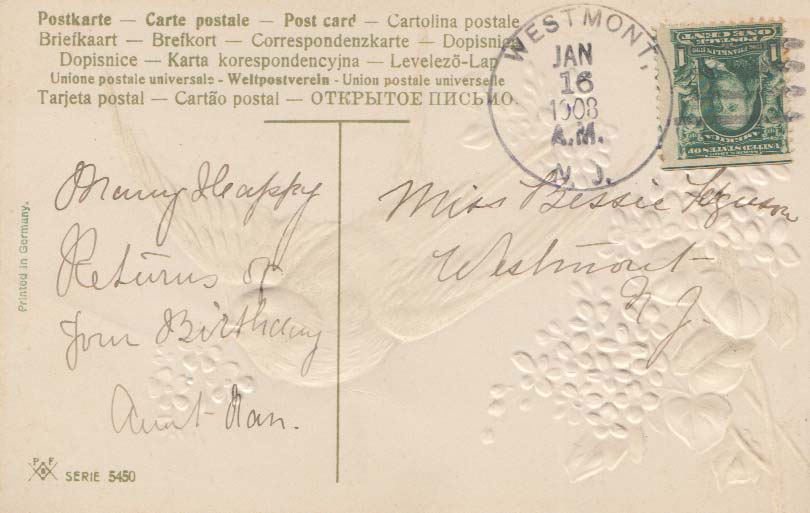 Postkarte — Carte postale — Post card — Cartolina postale
Briefkaart — Brefkort — Correspondenzkarte — Dopisnica
Dopisnice — Karta korespondencyjna — Levelező-Lap
Unione postale universale - Weltpostverein - Union postale universelle
Tarjeta postal — Cartão postal — ОТКРЫТОЕ ПИСЬМО.
WESTMONT,
JAN
16
1908
A.M.
N. J.
1 POSTAGE ONE CENT 1
FRANKLIN
UNITED STATES OF
AMERICA
Many Happy
Returns of
Your Birthday
Aunt Nan.
Miss Bessie Ferguson
Westmont
N J.
Printed in Germany.
P F
SERIE 5450